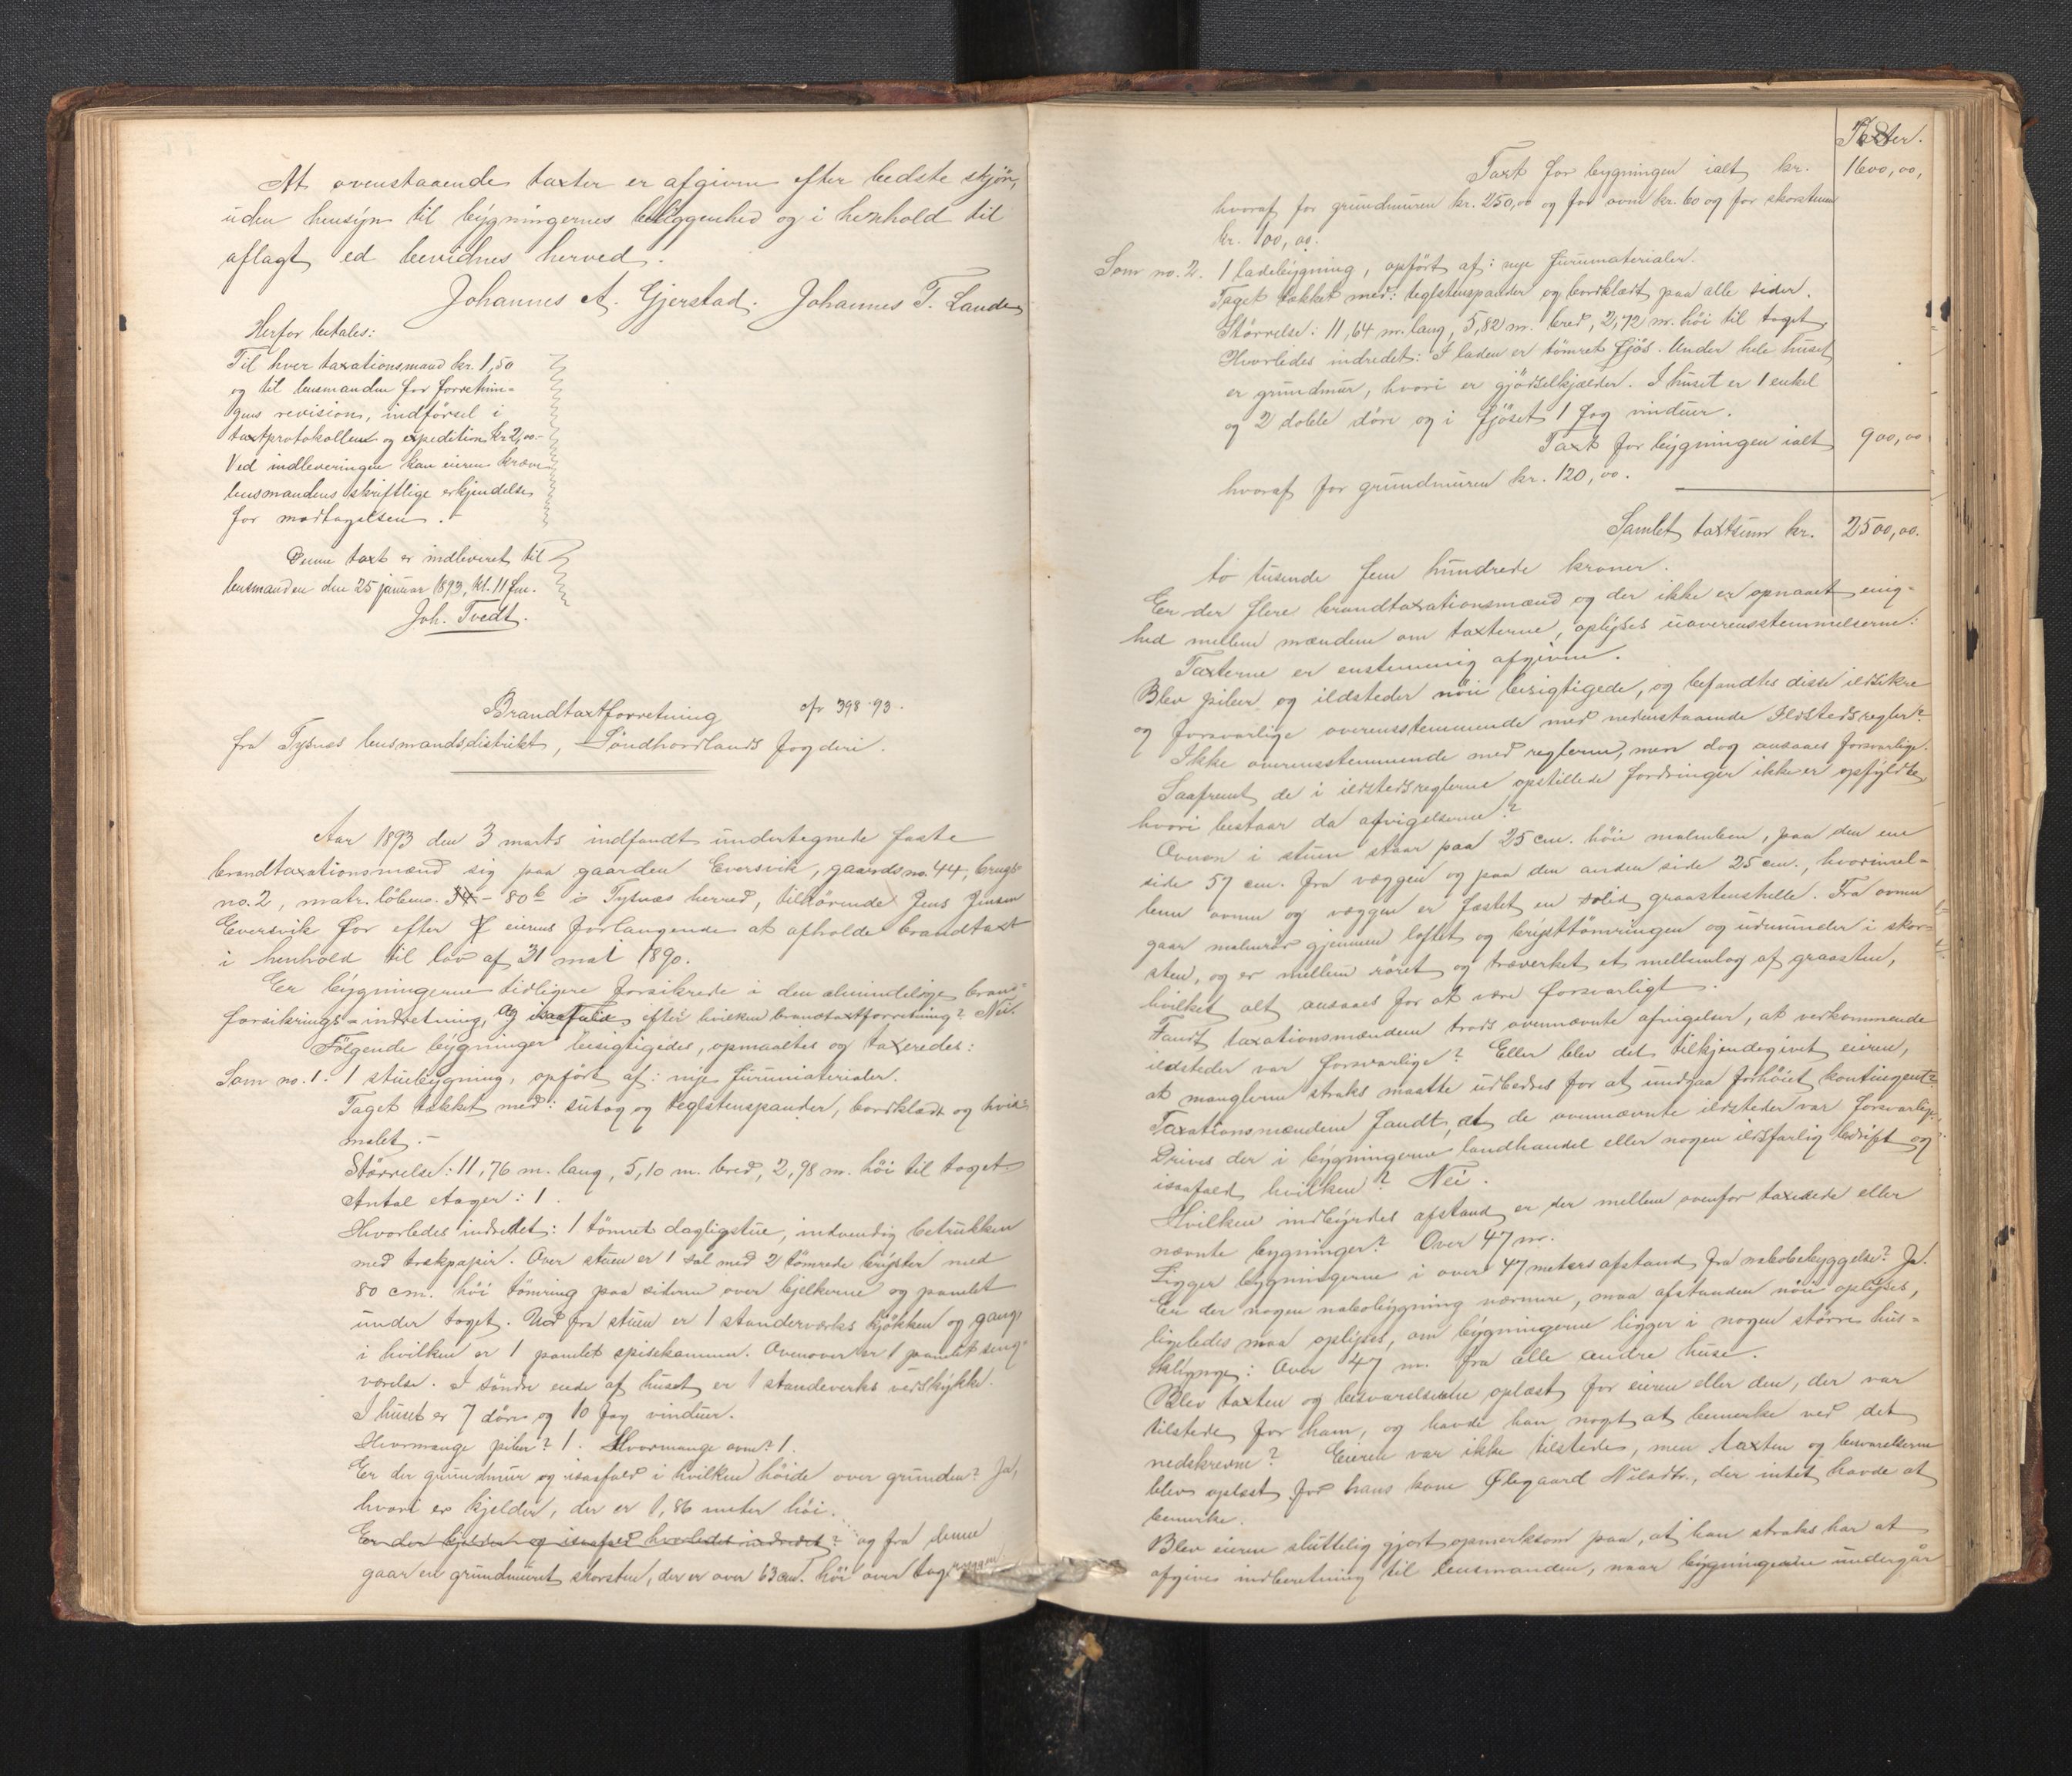 At ovenstaaende taxter er afgivne efter bedste skjön,
uden hensyn til bygningernes beliggenhed og i henhold til
aflagt ed bevidnes herved.
Johannes A. Gjerstad. Johannes T. Lande
Herfor betales:
Til hver taxationsmand kr. 1,50
og til lensmanden for forretnin-
gens revision, indförsel i
taxtprotokollen og expedition kr 2,00.-
Ved indleveringen kan eieren kræve
lensmandens skriftlige erkjendelse
for modtagelsen.-
Denne taxt er indleveret til
lensmanden den 25 januar 1893, kl. 11 fm.
Joh. Tvedt.
Brandtaxtforretning cfr 398-93.
fra Tysnæs lensmandsdistrikt, Söndhordlands fogderi.
Aar 1893 den 3 marts indfandt undertegnede faste
brandtaxationsmænd sig paa gaarden Eversvik, gaardsno. 44, brugs-
no. 2, matr. löbeno. 80 b i Tysnæs herred, tilhörende Jens Jensen
Eversvik for efter eierens forlangende at afholde brandtaxt
i henhold til lov af 31 mai 1890.
Er bygningerne tidligere forsikrede i den almindelige brand-
forsikrings-indretning, og isaafald efter hvilken brandtaxtforretning? Nei.
Fölgende bygninger besigtigedes, opmaaltes og taxeredes:
Som no. 1: 1 stuebygning, opfört af: nye furumaterialer.
Taget tækket med: sutag og teglstenspander, bordklædt og hvid-
malet.-
Störrelse: 11,76 m. lang, 5,10 m. bred, 2,98 m. höi til taget
Antal etager: 1.
Hvorledes indredet: 1 tömret dagligstue, indvendig betrukken
med trækpapir. Over stuen er 1 sal med 2 tömrede bryster med
80 cm. höi tömring paa siderne over bjelkerne og panelet
under taget. Ud fra stuen er 1 standerværks kjökken og gang,
i hvilken er 1 panelet spisekammer. Ovenover er 1 panelet seng-
værelse. I söndre ende af huset er 1 standeverks vedskykke.
I huset er 7 döre og 10 fag vinduer.
Hvormange piber? 1. Hvormange ovne? 1.
Er der grundmur og isaafald i hvilken höide over grunden? Ja,
hvori er kjelder, der er 1,86 meter höi.
Er der kjelder og isaafald hvorledes indredet? og fra denne
gaar en grundmuret skorsten, der er over 63 cm. höi over tagryggen
Taxter.
Taxt for bygningen ialt kr. 1600,00,
hvoraf for grundmuren kr. 250,00 og for ovne kr. 60 og for skorstenen
kr. 100,00.
Som no. 2. 1 ladebygning, opfört af: nye furumaterialer.
Taget tækket med: teglstenspander og bordklædt paa alle sider.
Störrelse: 11,64 m. lang, 5,82 m. bred, 2,72 m. höi til taget.
Hvorledes indredet: I laden er tömret fjös. Under hele huset
er grundmur, hvori er gjödselkjælder. I huset er 1 enkel
og 2 doble döre og i fjöset 1 fag vinduer.
Taxt for bygningen ialt 900,00
hvoraf for grundmuren kr. 120,00.
Samlet taxtsum kr. 2500,00.
to tusende fem hundrede kroner.
Er der flere brandtaxationsmænd og der ikke er opnaaet enig-
hed mellem mændene om taxterne, oplyses uoverensstemmelserne:
Taxterne er enstemmig afgivne.
Blev piber og ildsteder nöie besigtigede, og befandtes disse ildsikre
og forsvarlige overensstemmende med nedenstaaende Ildstedsregler?
Ikke overensstemmende med reglerne, men dog ansaaes forsvarlige.
Saafremt de i ildstedsreglerne opstillede fordringer ikke er opfyldte,
hvori bestaar da afvigelserne?
Ovnen i stuen staar paa 25 cm. höie malmben, paa den ene
side 57 cm. fra væggen og paa den anden side 25 cm., hvorimel-
lem ovnen og væggen er fæstet en solid graastenshelle. Fra ovnen
gaar malmrör gjennem loftet og brysttömringen og udmunder i skor-
sten, og er mellem röret og træverket et mellemlag af graasten,
hvilket alt ansaaes for at være forsvarligt.
Fandt taxationsmændene trods ovennævnte afvigelser, at vedkommende
ildsteder var forsvarlige? Eller blev det tilkjendegivet eieren,
at manglerne straks maatte udbedres for at undgaa forhöiet kontingent?
Taxationsmændene fandt, at de ovennævnte ildsteder var forsvarlige.
Drives der i bygningerne landhandel eller nogen ildsfarlig bedrift og
isaafald hvilken? Nei.
Hvilken indbyrdes afstand er der mellem ovenfor taxerede eller
nævnte bygninger? Over 47 m.
Ligger bygningerne i over 47 meters afstand fra nabobebyggelse? Ja.
Er der nogen nabobygning nærmere, maa afstanden nöie oplyses,
ligeledes maa oplyses, om bygningerne ligger i nogen större hus-
klynge: Over 47 m. fra alle andre huse.
Blev taxten og besvarelserne oplæst for eieren eller den, der var
tilstede for ham, og havde han noget at bemerke ved det
nedskrevne? Eieren var ikke tilstede, men taxten og besvarelserne
blev oplæst for hans kone Ølegaard Nilsdtr., der intet havde at
bemerke.
Blev eieren sluttelig gjort opmerksom paa, at han straks har at
afgive indberetning til lensmanden, naar bygningerne undergår